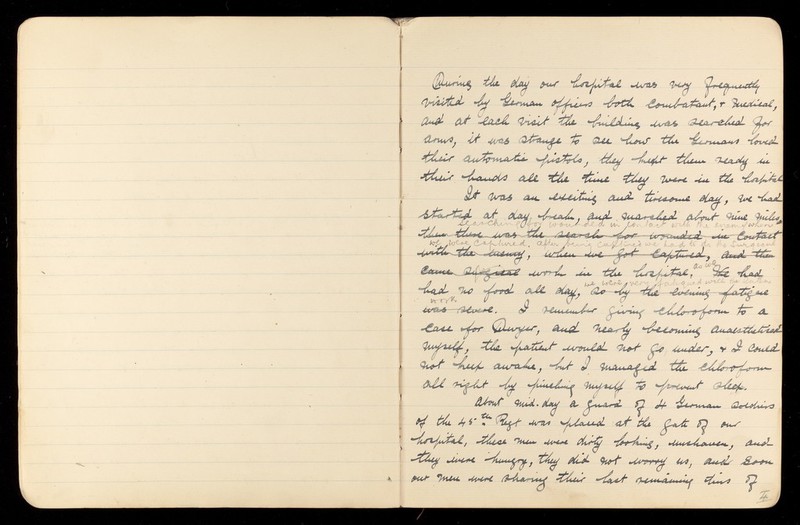 During the day our hospital was very frequently
visited by German officers both combatant, & medical,
and at each visit the building was searched for
arms, it was strange to see how the Germans loved
their automatic pistols, they kept them ready in
their hands all the time they were in the hospital
It was an exciting and tiresome day, we had
started at day break, and marched about nine miles,
searching for wounded in contact with the
then there was the search for wounded in contact
we were captured, after being captured we had to do the surgical
with the enemy, when we got captured, and then
came surgical work in the hospital, We had
had no food all day, so by the evening fatigue
was severe. I remember giving chloroform to a
case for Dwyer, and nearly becoming anaesthetised
myself, the patient would not go under, & I could
not keep awake, but I managed the chloroform
all right by pinching myself to prevent sleep.
About mid-day a guard of 4 German soldiers
of the 45th Regt was placed at the gate of our
hospital, these men were dirty looking, unshaven, and
they were hungry, they did not worry us, and soon
our men were sharing their last remaining tins of